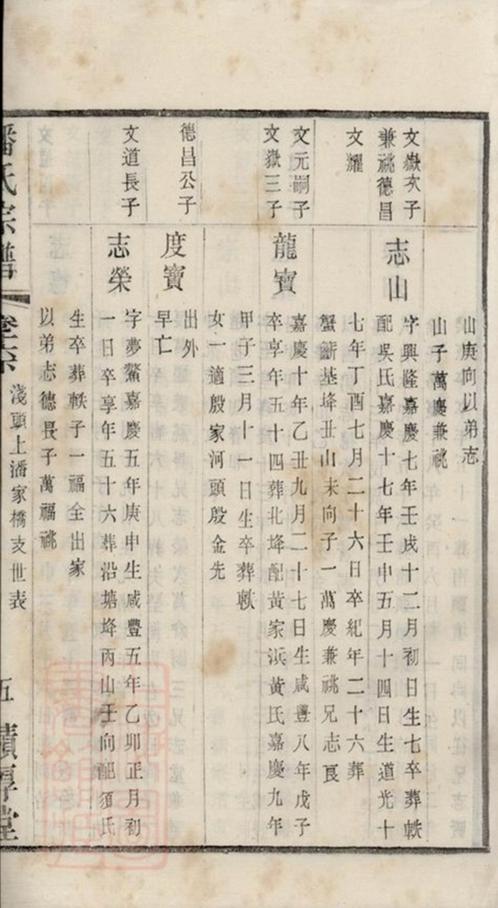 山庚向以弟志
山子萬慶兼祧
文嶽次子
兼祧德昌
文耀
志山
字興隆嘉慶七年壬戌十二月初日生七卒葬軼
配吳氏嘉慶十七年壬申五月十四日生道光十
七年丁酉七月二十六日卒紀年二十六葬
蟹斷基垰丑山未向子一萬慶兼祧兄志良
文元嗣子
文嶽三子
龍寶
嘉慶十年乙丑九月二十七日生咸豐八年戊子
卒享年五十四葬北垰配黃家浜黃氏嘉慶九年
甲子三月十一日生卒葬軼
女一適殷家河頭殷金先
德昌公子
度寶
出外
早亡
文道長子
志榮
字夢鰲嘉慶五年庚申生咸豐五年乙卯正月初
一日卒享年五十六葬沿塘垰丙山壬向配須氏
生卒葬軼子一福全出家
以弟志德長子萬福祧
潘氏宗譜
淺頭上潘家橋支世表
五
積厚堂